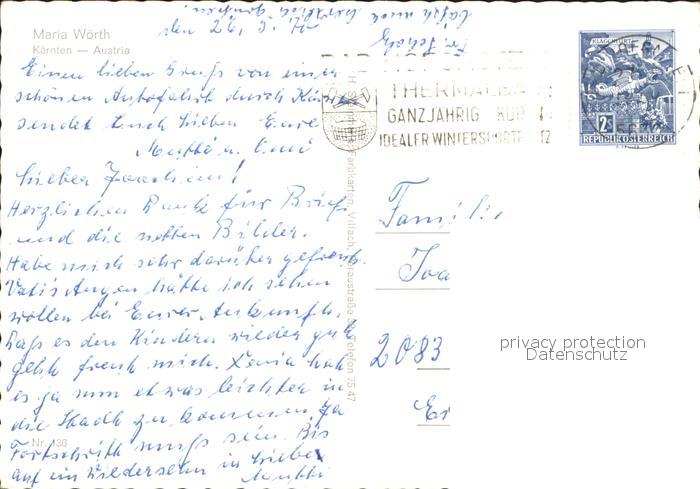 Maria Wörth
Kärnten — Austria
den 29.
Einen lieben Gruß von einer
schönen Autofahrt durch Kärnten
sendet Euch Lieben Eure
Mutti u. Omi
Lieber Joachim!
Herzlichen Dank für Brief
und die netten Bilder.
Habe mich sehr darüber gefreut.
Vatis Augen hätte ich sehen
wollen bei Eurer Ankunft.
Daß es den Kindern wieder gut
geht freut mich. Xenia hat
es ja nun etwas leichter in
die Stadt zu kommen, Ja
Fortschritt muß sein. Bis
auf ein Wiedersehn in Liebe
Mutti
Nr. 436
Farbkarten, Villach
Telefon 75 47
THERMALBA
GANZJÄHRIG KUR
IDEALER WINTERSPORTP
KLAGENFURT
2S
REPUBLIK ÖSTERREICH
Famili
Joa
2083
privacy protection
Datenschutz